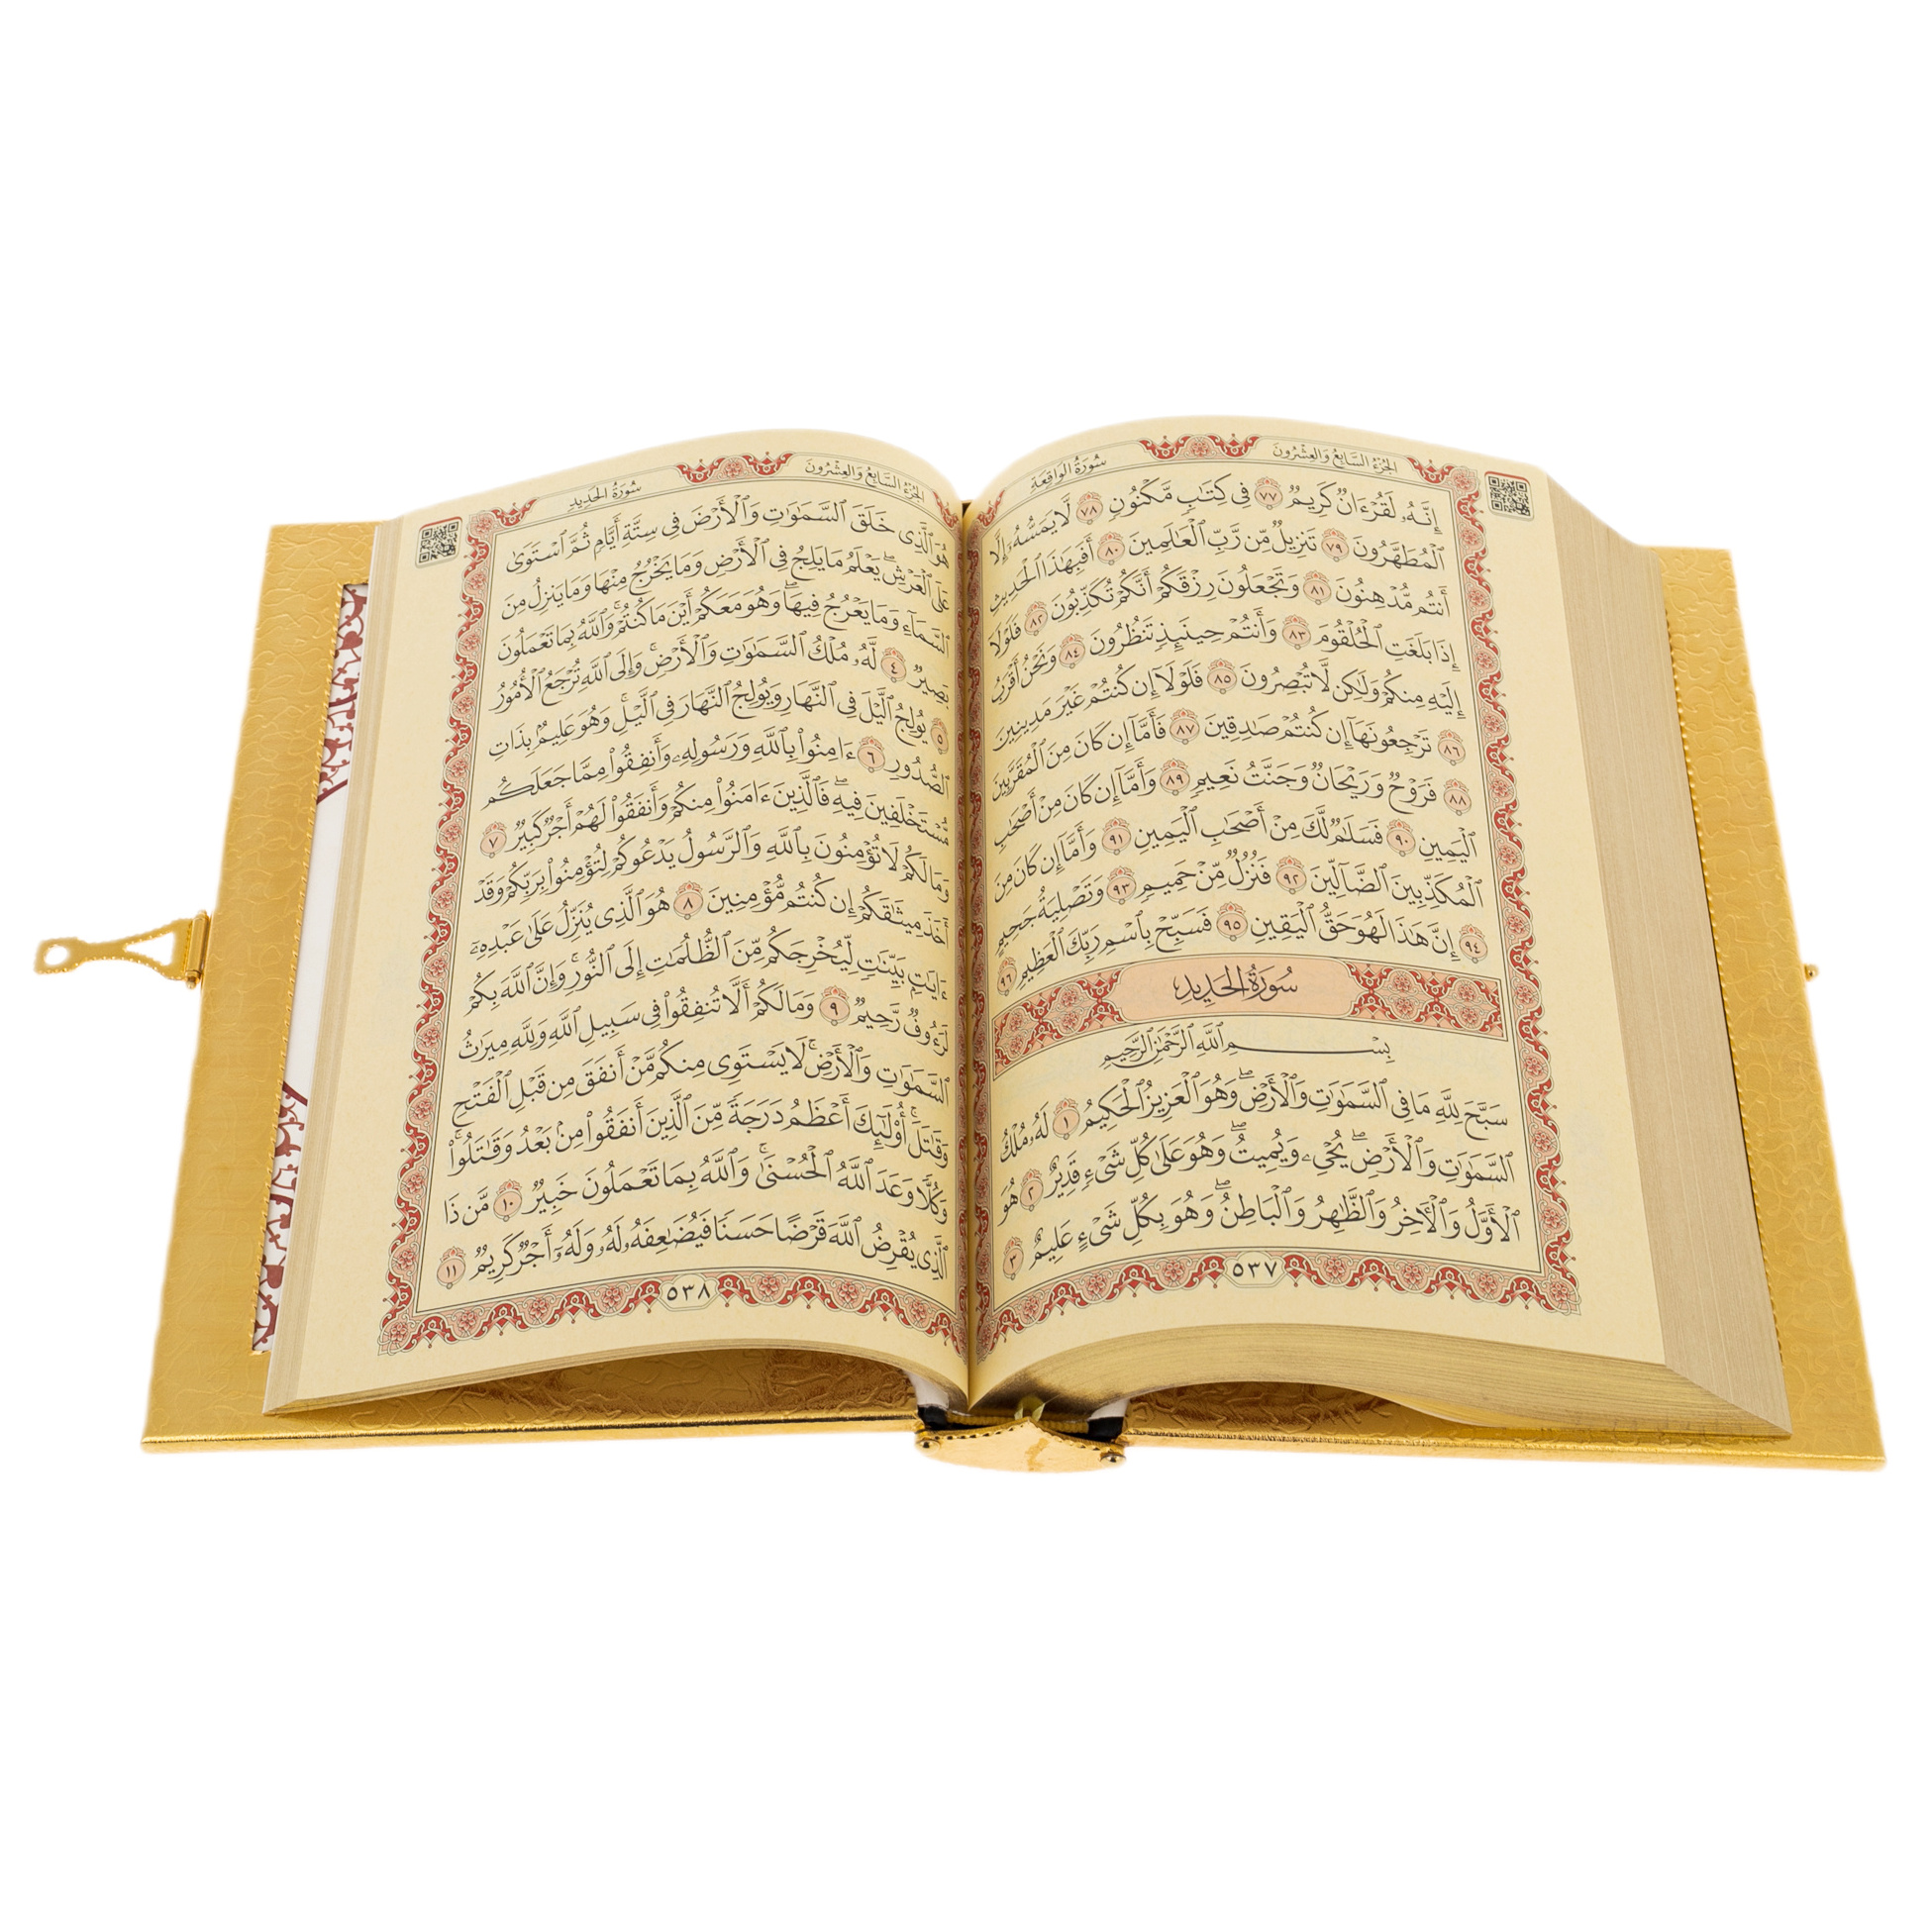 الجُزْءُ السَّابِعُ وَالعِشْرُونَ
سُورَةُ الوَاقِعَةِ
إِنَّهُۥ لَقُرْءَانٌ كَرِيمٌ ٧٧ فِى كِتَٰبٍ مَّكْنُونٍ ٧٨ لَّا يَمَسُّهُۥٓ إِلَّا
ٱلْمُطَهَّرُونَ ٧٩ تَنزِيلٌ مِّن رَّبِّ ٱلْعَٰلَمِينَ ٨٠ أَفَبِهَٰذَا ٱلْحَدِيثِ
أَنتُم مُّدْهِنُونَ ٨١ وَتَجْعَلُونَ رِزْقَكُمْ أَنَّكُمْ تُكَذِّبُونَ ٨٢ فَلَوْلَآ
إِذَا بَلَغَتِ ٱلْحُلْقُومَ ٨٣ وَأَنتُمْ حِينَئِذٍ تَنظُرُونَ ٨٤ وَنَحْنُ أَقْرَبُ
إِلَيْهِ مِنكُمْ وَلَٰكِن لَّا تُبْصِرُونَ ٨٥ فَلَوْلَآ إِن كُنتُمْ غَيْرَ مَدِينِينَ
٨٦ تَرْجِعُونَهَآ إِن كُنتُمْ صَٰدِقِينَ ٨٧ فَأَمَّآ إِن كَانَ مِنَ ٱلْمُقَرَّبِينَ
٨٨ فَرَوْحٌ وَرَيْحَانٌ وَجَنَّتُ نَعِيمٍ ٨٩ وَأَمَّآ إِن كَانَ مِنْ أَصْحَٰبِ
ٱلْيَمِينِ ٩٠ فَسَلَٰمٌ لَّكَ مِنْ أَصْحَٰبِ ٱلْيَمِينِ ٩١ وَأَمَّآ إِن كَانَ مِنَ
ٱلْمُكَذِّبِينَ ٱلضَّآلِّينَ ٩٢ فَنُزُلٌ مِّنْ حَمِيمٍ ٩٣ وَتَصْلِيَةُ جَحِيمٍ
٩٤ إِنَّ هَٰذَا لَهُوَ حَقُّ ٱلْيَقِينِ ٩٥ فَسَبِّحْ بِٱسْمِ رَبِّكَ ٱلْعَظِيمِ ٩٦
سُورَةُ الحَدِيدِ
بِسْمِ ٱللَّهِ ٱلرَّحْمَٰنِ ٱلرَّحِيمِ
سَبَّحَ لِلَّهِ مَا فِى ٱلسَّمَٰوَٰتِ وَٱلْأَرْضِ ۖ وَهُوَ ٱلْعَزِيزُ ٱلْحَكِيمُ ١ لَهُۥ مُلْكُ
ٱلسَّمَٰوَٰتِ وَٱلْأَرْضِ ۖ يُحْىِۦ وَيُمِيتُ ۖ وَهُوَ عَلَىٰ كُلِّ شَىْءٍ قَدِيرٌ ٢ هُوَ
ٱلْأَوَّلُ وَٱلْءَاخِرُ وَٱلظَّٰهِرُ وَٱلْبَاطِنُ ۖ وَهُوَ بِكُلِّ شَىْءٍ عَلِيمٌ ٣
٥٣٧
الجُزْءُ السَّابِعُ وَالعِشْرُونَ
سُورَةُ الحَدِيدِ
هُوَ ٱلَّذِى خَلَقَ ٱلسَّمَٰوَٰتِ وَٱلْأَرْضَ فِى سِتَّةِ أَيَّامٍ ثُمَّ ٱسْتَوَىٰ
عَلَى ٱلْعَرْشِ ۚ يَعْلَمُ مَا يَلِجُ فِى ٱلْأَرْضِ وَمَا يَخْرُجُ مِنْهَا وَمَا يَنزِلُ مِنَ
ٱلسَّمَآءِ وَمَا يَعْرُجُ فِيهَا ۖ وَهُوَ مَعَكُمْ أَيْنَ مَا كُنتُمْ ۚ وَٱللَّهُ بِمَا تَعْمَلُونَ
بَصِيرٌ ٤ لَّهُۥ مُلْكُ ٱلسَّمَٰوَٰتِ وَٱلْأَرْضِ ۚ وَإِلَى ٱللَّهِ تُرْجَعُ ٱلْأُمُورُ
٥ يُولِجُ ٱلَّيْلَ فِى ٱلنَّهَارِ وَيُولِجُ ٱلنَّهَارَ فِى ٱلَّيْلِ ۚ وَهُوَ عَلِيمٌۢ بِذَاتِ
ٱلصُّدُورِ ٦ ءَامِنُوا۟ بِٱللَّهِ وَرَسُولِهِۦ وَأَنفِقُوا۟ مِمَّا جَعَلَكُم
مُّسْتَخْلَفِينَ فِيهِ ۖ فَٱلَّذِينَ ءَامَنُوا۟ مِنكُمْ وَأَنفَقُوا۟ لَهُمْ أَجْرٌ كَبِيرٌ ٧
وَمَا لَكُمْ لَا تُؤْمِنُونَ بِٱللَّهِ ۙ وَٱلرَّسُولُ يَدْعُوكُمْ لِتُؤْمِنُوا۟ بِرَبِّكُمْ وَقَدْ
أَخَذَ مِيثَٰقَكُمْ إِن كُنتُم مُّؤْمِنِينَ ٨ هُوَ ٱلَّذِى يُنَزِّلُ عَلَىٰ عَبْدِهِۦٓ
ءَايَٰتٍۭ بَيِّنَٰتٍ لِّيُخْرِجَكُم مِّنَ ٱلظُّلُمَٰتِ إِلَى ٱلنُّورِ ۚ وَإِنَّ ٱللَّهَ بِكُمْ
لَرَءُوفٌ رَّحِيمٌ ٩ وَمَا لَكُمْ أَلَّا تُنفِقُوا۟ فِى سَبِيلِ ٱللَّهِ وَلِلَّهِ مِيرَٰثُ
ٱلسَّمَٰوَٰتِ وَٱلْأَرْضِ ۚ لَا يَسْتَوِى مِنكُم مَّنْ أَنفَقَ مِن قَبْلِ ٱلْفَتْحِ
وَقَٰتَلَ ۚ أُو۟لَٰٓئِكَ أَعْظَمُ دَرَجَةً مِّنَ ٱلَّذِينَ أَنفَقُوا۟ مِنۢ بَعْدُ وَقَٰتَلُوا۟ ۚ
وَكُلًّا وَعَدَ ٱللَّهُ ٱلْحُسْنَىٰ ۚ وَٱللَّهُ بِمَا تَعْمَلُونَ خَبِيرٌ ١٠ مَّن ذَا
ٱلَّذِى يُقْرِضُ ٱللَّهَ قَرْضًا حَسَنًا فَيُضَٰعِفَهُۥ لَهُۥ وَلَهُۥٓ أَجْرٌ كَرِيمٌ ١١
٥٣٨